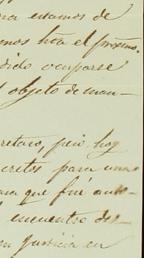 estamos de
mos hta el próximo
dido ocuparse
objeto de man-
retaro, pero hoy
cretos para una
que fué auto-
encuentro des-
justicia en